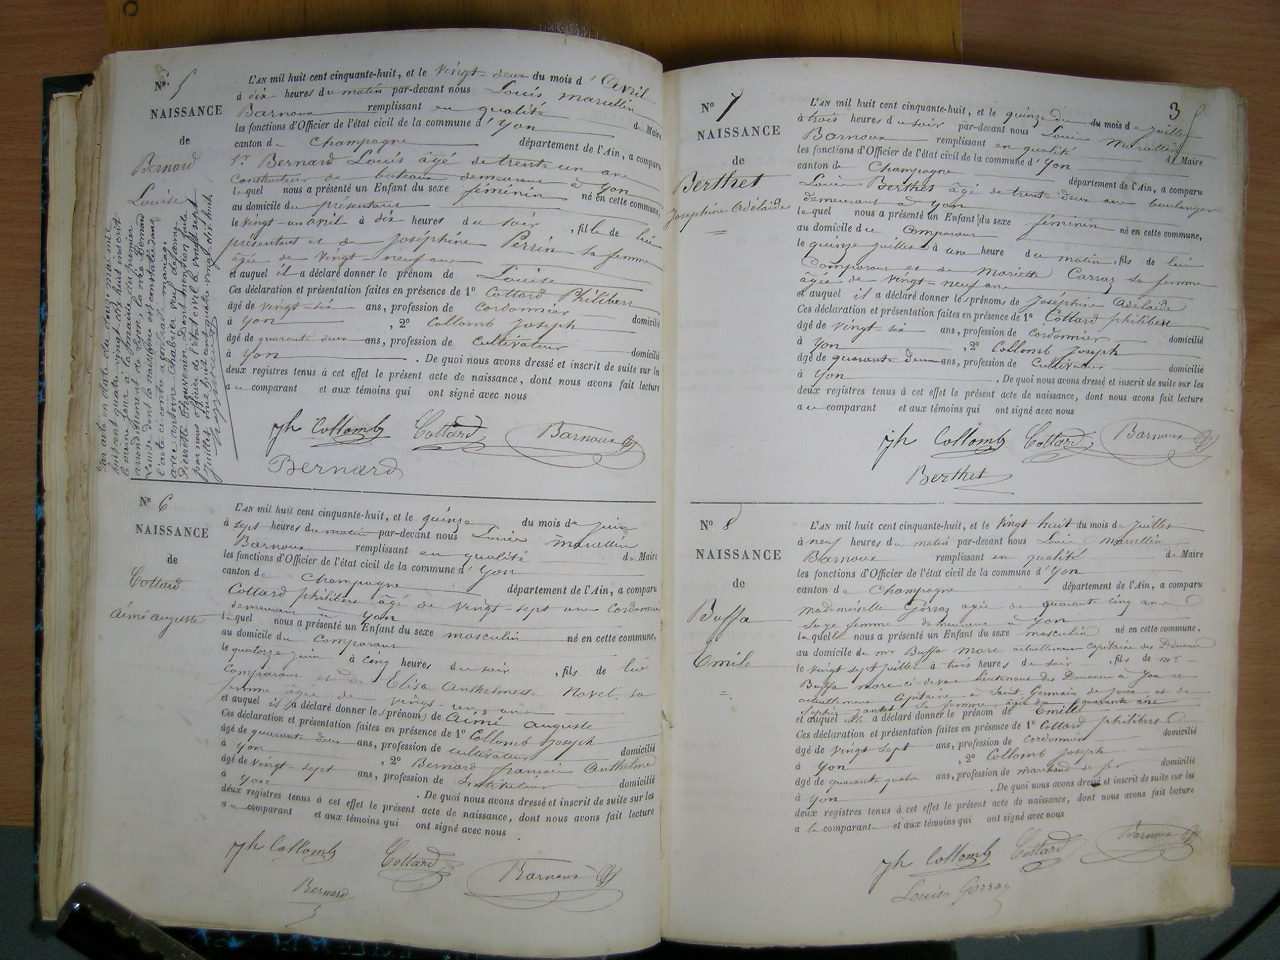 N° 5
NAISSANCE
de
Bernard
Louise
L'AN mil huit cent cinquante-huit, et le vingt-deux du mois d'Avril
à dix heures du matin par-devant nous Louis Marcellin
Barnoux remplissant en qualité de Maire
les fonctions d'Officier de l'état civil de la commune d'Yon
canton de Champagne département de l'Ain, a comparu
Sr. Bernard Louis âgé de trente un ans
Constructeur de bateau demeurant à Yon
lequel nous a présenté un Enfant du sexe féminin né en cette commune,
au domicile du présentant
le vingt un avril à dix heures du soir, fille de lui
présentant et de Joséphine Perrin sa femme
âgée de vingt neuf ans
et auquel il a déclaré donner le prénom de Louise
Ces déclaration et présentation faites en présence de 1° Cottard Philibert
âgé de vingt-six ans, profession de Cordonnier domicilié
à Yon, 2° Collomb Joseph
âgé de quarante deux ans, profession de Cultivateur domicilié
à Yon. De quoi nous avons dressé et inscrit de suite sur les
deux registres tenus à cet effet le présent acte de naissance, dont nous avons fait lecture
au comparant et aux témoins qui ont signé avec nous
Jh Collomb Cottard Barnoux
Bernard
N° 6
NAISSANCE
de
Cottard
Aimé auguste
L'AN mil huit cent cinquante-huit, et le quinze du mois de juin
à sept heures du matin par-devant nous Louis Marcellin
Barnoux remplissant en qualité de Maire
les fonctions d'Officier de l'état civil de la commune d'Yon
canton de Champagne département de l'Ain, a comparu
Cottard philibert âgé de vingt-sept ans Cordonnier
demeurant à Yon
lequel nous a présenté un Enfant du sexe masculin né en cette commune,
au domicile du comparant
le quatorze juin à cinq heures du soir, fils de lui
comparant et de Elisa Anthelmette Navel sa
femme âgée de vingt-un ans
et auquel il a déclaré donner les prénoms de Aimé auguste
Ces déclaration et présentation faites en présence de 1° Collomb Joseph
âgé de quarante deux ans, profession de cultivateur domicilié
à Yon, 2° Bernard françois Anthelme
âgé de vingt-sept ans, profession de Instituteur domicilié
à Yon. De quoi nous avons dressé et inscrit de suite sur les
deux registres tenus à cet effet le présent acte de naissance, dont nous avons fait lecture
au comparant et aux témoins qui ont signé avec nous
Jh Collomb Cottard Barnoux
Bernard
3
N° 7
NAISSANCE
de
Berthet
Joséphine Adélaïde
L'AN mil huit cent cinquante-huit, et le quinze du mois de juillet
à trois heures du soir par-devant nous Louis Marcellin
Barnoux remplissant en qualité de Maire
les fonctions d'Officier de l'état civil de la commune d'Yon
canton de Champagne département de l'Ain, a comparu
Louis Berthet âgé de trente deux ans boulanger
demeurant à Yon
lequel nous a présenté un Enfant du sexe féminin né en cette commune,
au domicile du Comparant
le quinze juillet à une heure du matin, fils de lui
Comparant et de Mariette Carraz sa femme
âgée de vingt-neuf ans
et auquel il a déclaré donner les prénoms de Joséphine Adélaïde
Ces déclaration et présentation faites en présence de 1° Cottard philibert
âgé de vingt six ans, profession de Cordonnier domicilié
à Yon, 2° Collomb Joseph
âgé de quarante deux ans, profession de Cultivateur domicilié
à Yon. De quoi nous avons dressé et inscrit de suite sur les
deux registres tenus à cet effet le présent acte de naissance, dont nous avons fait lecture
au comparant et aux témoins qui ont signé avec nous
Jh Collomb Cottard Barnoux
Berthet
N° 8
NAISSANCE
de
Buffa
Emile
L'AN mil huit cent cinquante-huit, et le vingt huit du mois de juillet
à neuf heures du matin par-devant nous Louis Marcellin
Barnoux remplissant en qualité de Maire
les fonctions d'Officier de l'état civil de la commune d'Yon
canton de Champagne département de l'Ain, a comparu
Mademoiselle Gorraz agée de quarante cinq ans
Sage femme demeurant à Yon
laquelle nous a présenté un Enfant du sexe masculin né en cette commune,
au domicile de mr Buffa marc actuellement capitaine des Douanes
le vingt sept juillet à trois heures du soir, fils de mr
Buffa marc ci devant lieutenant des Douanes à Yon et
actuellement Capitaine à Saint Germain de Joux et de
sa femme âgée de quarante ans
et auquel elle a déclaré donner le prénom de Emille
Ces déclaration et présentation faites en présence de 1° Cottard philibert
âgé de vingt sept ans, profession de Cordonnier domicilié
à Yon, 2° Collomb Joseph
âgé de quarante quatre ans, profession de marchand de fer domicilié
à Yon. De quoi nous avons dressé et inscrit de suite sur les
deux registres tenus à cet effet le présent acte de naissance, dont nous avons fait lecture
a la comparant et aux témoins qui ont signé avec nous
Jh Collomb Cottard Barnoux
Louise Gorraz